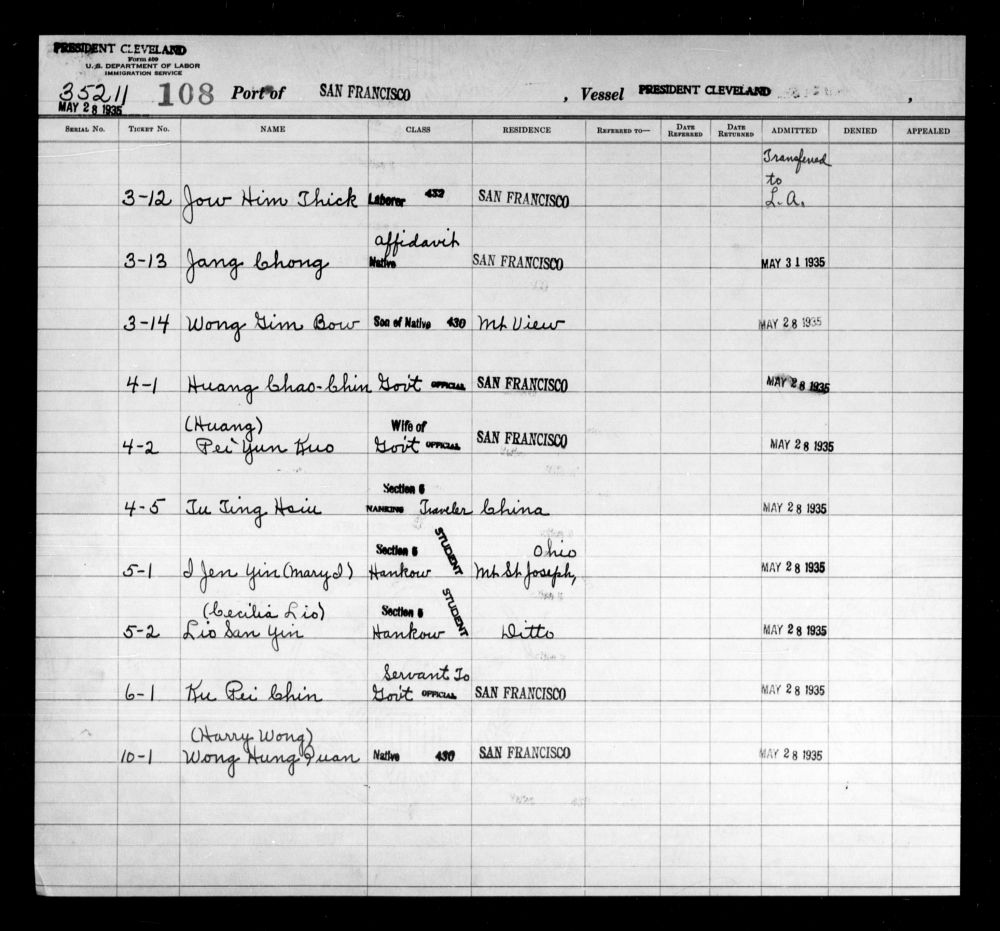 PRESIDENT CLEVELAND
Form 400
U. S. DEPARTMENT OF LABOR
IMMIGRATION SERVICE
35211 108 Port of SAN FRANCISCO , Vessel PRESIDENT CLEVELAND ,
MAY 28 1935
SERIAL NO. TICKET NO. NAME CLASS RESIDENCE REFERRED TO— DATE REFERRED DATE RETURNED ADMITTED DENIED APPEALED
Transferred
to
3-12 Jow Him Thick Laborer 432 SAN FRANCISCO L.A.
affidavit
3-13 Jang Chong Native SAN FRANCISCO MAY 31 1935
3-14 Wong Gim Bow Son of Native 430 Mt. View MAY 28 1935
4-1 Huang Chao-Chin Gov't OFFICIAL SAN FRANCISCO MAY 28 1935
(Huang) Wife of
4-2 Pei Yun Kuo Gov't OFFICIAL SAN FRANCISCO MAY 28 1935
Section 6
4-5 Tu Ting Hsiu NANKING Traveler China MAY 28 1935
Section 6 STUDENT Ohio
5-1 I Jen Yin (Mary I) Hankow Mt. St. Joseph, MAY 28 1935
(Cecilia Lio) Section 6 STUDENT
5-2 Lio San Yin Hankow Ditto MAY 28 1935
Servant To
6-1 Ku Pei Chin Gov't OFFICIAL SAN FRANCISCO MAY 28 1935
(Harry Wong)
10-1 Wong Hung Quan Native 430 SAN FRANCISCO MAY 28 1935